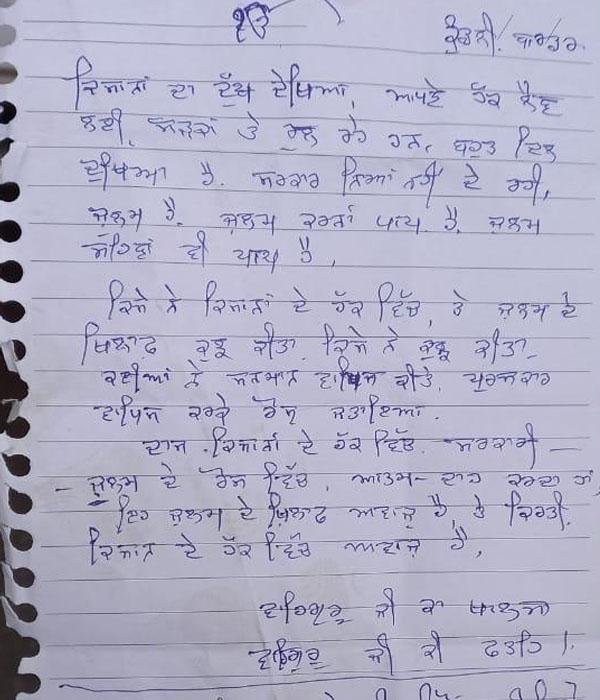 ੴ
ਕੁੰਡਲੀ ਬਾਰਡਰ
ਕਿਸਾਨਾਂ ਦਾ ਦੁੱਖ ਦੇਖਿਆ, ਆਪਣੇ ਹੱਕ ਲੈਣ
ਲਈ, ਸੜਕਾਂ ਤੇ ਰੁਲ ਰਹੇ ਹਨ, ਬਹੁਤ ਦਿਲ
ਦੁਖਿਆ ਹੈ. ਸਰਕਾਰ ਨਿਆਂ ਨਹੀਂ ਦੇ ਰਹੀ,
ਜੁਲਮ ਹੈ. ਜੁਲਮ ਕਰਨਾਂ ਪਾਪ ਹੈ, ਜੁਲਮ
ਸਹਿਣਾਂ ਵੀ ਪਾਪ ਹੈ,
ਕਿਸੇ ਨੇ ਕਿਸਾਨਾਂ ਦੇ ਹੱਕ ਵਿੱਚ, ਤੇ ਜੁਲਮ ਦੇ
ਖਿਲਾਫ ਕੁਝ ਕੀਤਾ ਕਿਸੇ ਨੇ ਕੁਝ ਕੀਤਾ
ਕਈਆਂ ਨੇ ਸਨਮਾਨ ਵਾਪਿਸ ਕੀਤੇ, ਪੁਰਸਕਾਰ
ਵਾਪਿਸ ਕਰਕੇ ਰੋਸ ਜਤਾਇਆ.
ਦਾਸ ਕਿਸਾਨਾਂ ਦੇ ਹੱਕ ਵਿੱਚ. ਸਰਕਾਰੀ —
- ਜੁਲਮ ਦੇ ਰੋਸ ਵਿੱਚ, ਆਤਮ-ਦਾਹ ਕਰਦਾ ਹਾਂ,
ਇਹ ਜੁਲਮ ਦੇ ਖਿਲਾਫ ਆਵਾਜ਼ ਹੈ, ਤੇ ਕਿਰਤੀ
ਕਿਸਾਨ ਦੇ ਹੱਕ ਵਿੱਚ ਆਵਾਜ਼ ਹੈ,
ਵਾਹਿਗੁਰੂ ਜੀ ਕਾ ਖਾਲਸਾ
ਵਾਹਿਗੁਰੂ ਜੀ ਕੀ ਫਤਹਿ।.